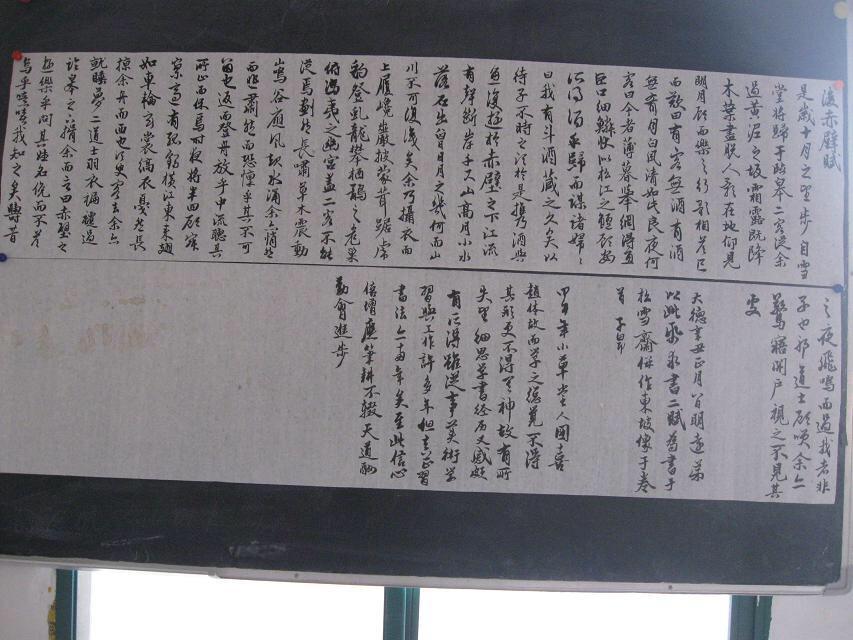 後赤壁賦
是歲十月之望步自雪
堂將歸于臨皋二客從余
過黃泥之坂霜露既降
木葉盡脫人影在地仰見
明月顧而樂之行歌相答已
而歎曰有客無酒有酒
無肴月白風清如此良夜何
客曰今者薄暮舉網得魚
巨口細鱗狀似松江之鱸顧安
所得酒乎歸而謀諸婦婦
曰我有斗酒藏之久矣以
待子不時之須於是攜酒與
魚復遊於赤壁之下江流
有聲斷岸千尺山高月小水
落石出曾日月之幾何而山
川不可復識矣余乃攝衣而
上履巉巖披蒙茸踞虎
豹登虯龍攀栖鶻之危巢
俯馮夷之幽宮蓋二客不能
從焉劃然長嘯草木震動
山鳴谷應風起水涌余亦悄然
而悲肅然而恐凜乎其不可
留也返而登舟放乎中流聽其
所止而休焉時夜將半四顧寂
寥適有孤鶴橫江東來翅
如車輪玄裳縞衣戛然長
掠余舟而西也須臾客去余亦
就睡夢二道士羽衣翩躚過
臨皋之下揖余而言曰赤壁之
遊樂乎問其姓名俛而不答
嗚呼噫嘻我知之矣疇昔
之夜飛鳴而過我者非
子也耶道士顧笑余亦
驚寤開戶視之不見其
處
大德辛丑正月八日明遠弟
以此紙求書二賦為書于
松雪齋併作東坡像于卷
首 子昂
甲午年小草堂人國喜
趙体故而学之总覺不得
其形更不得其神故有所
失望細思学書經历又感頗
有所得雖從事美術学
習與工作許多年但真正習
書法亦年矣至此信心
倍增應筆耕不輟天道酬
勤會進步